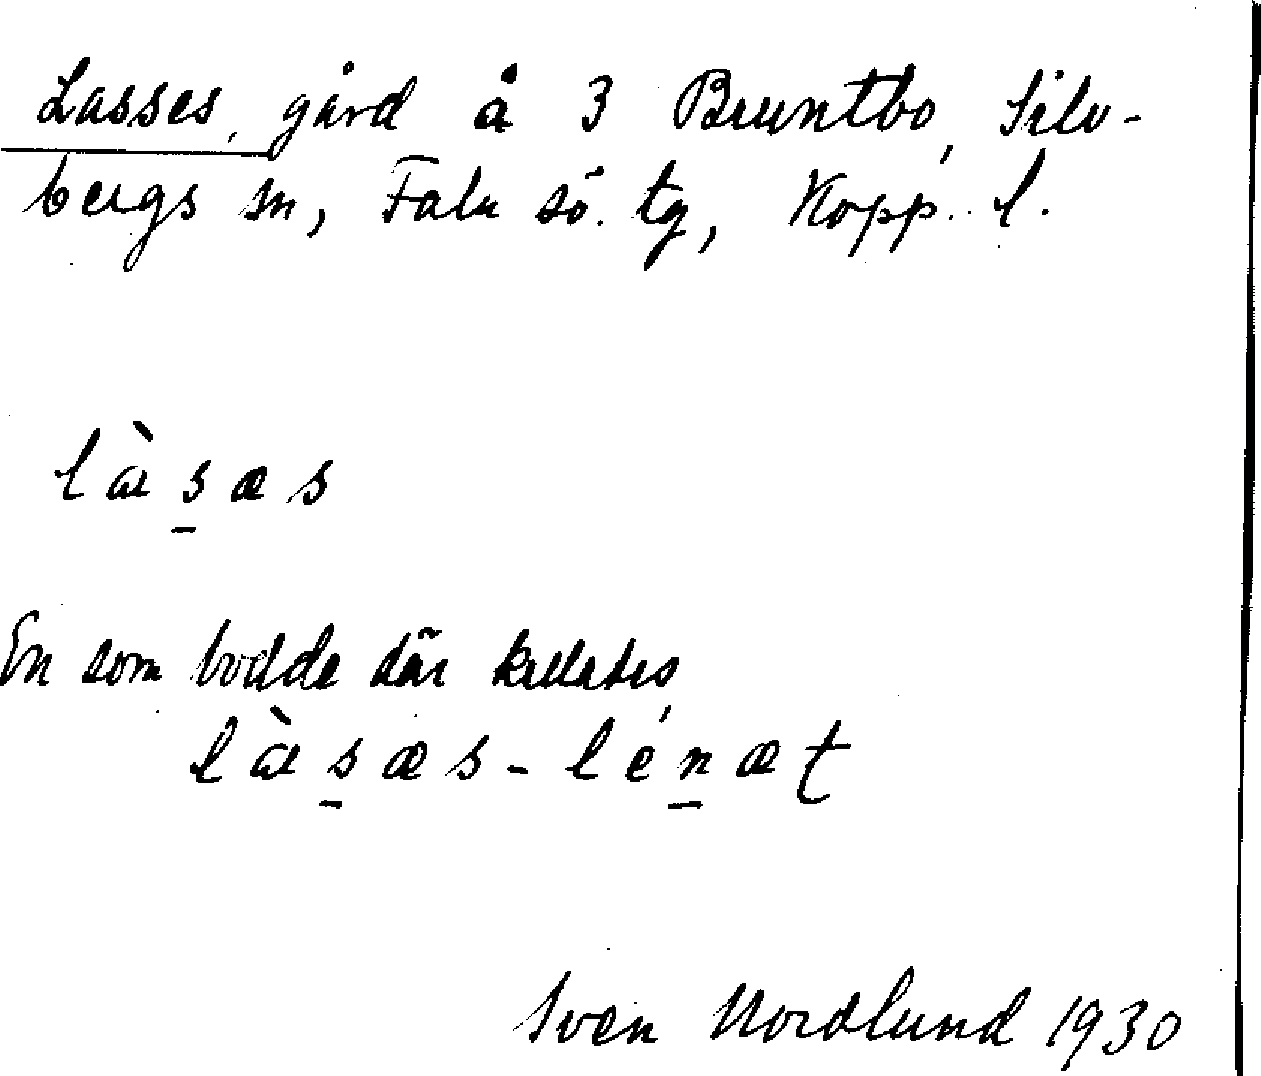 Lasses, gård å 3 Bruntbo, Silv-
bergs sn, Falu sö. tg, Kopp. l.
làs̠æs
En som bodde där kallades
làs̠æs-lén̠æt
Sven Nordlund 1930